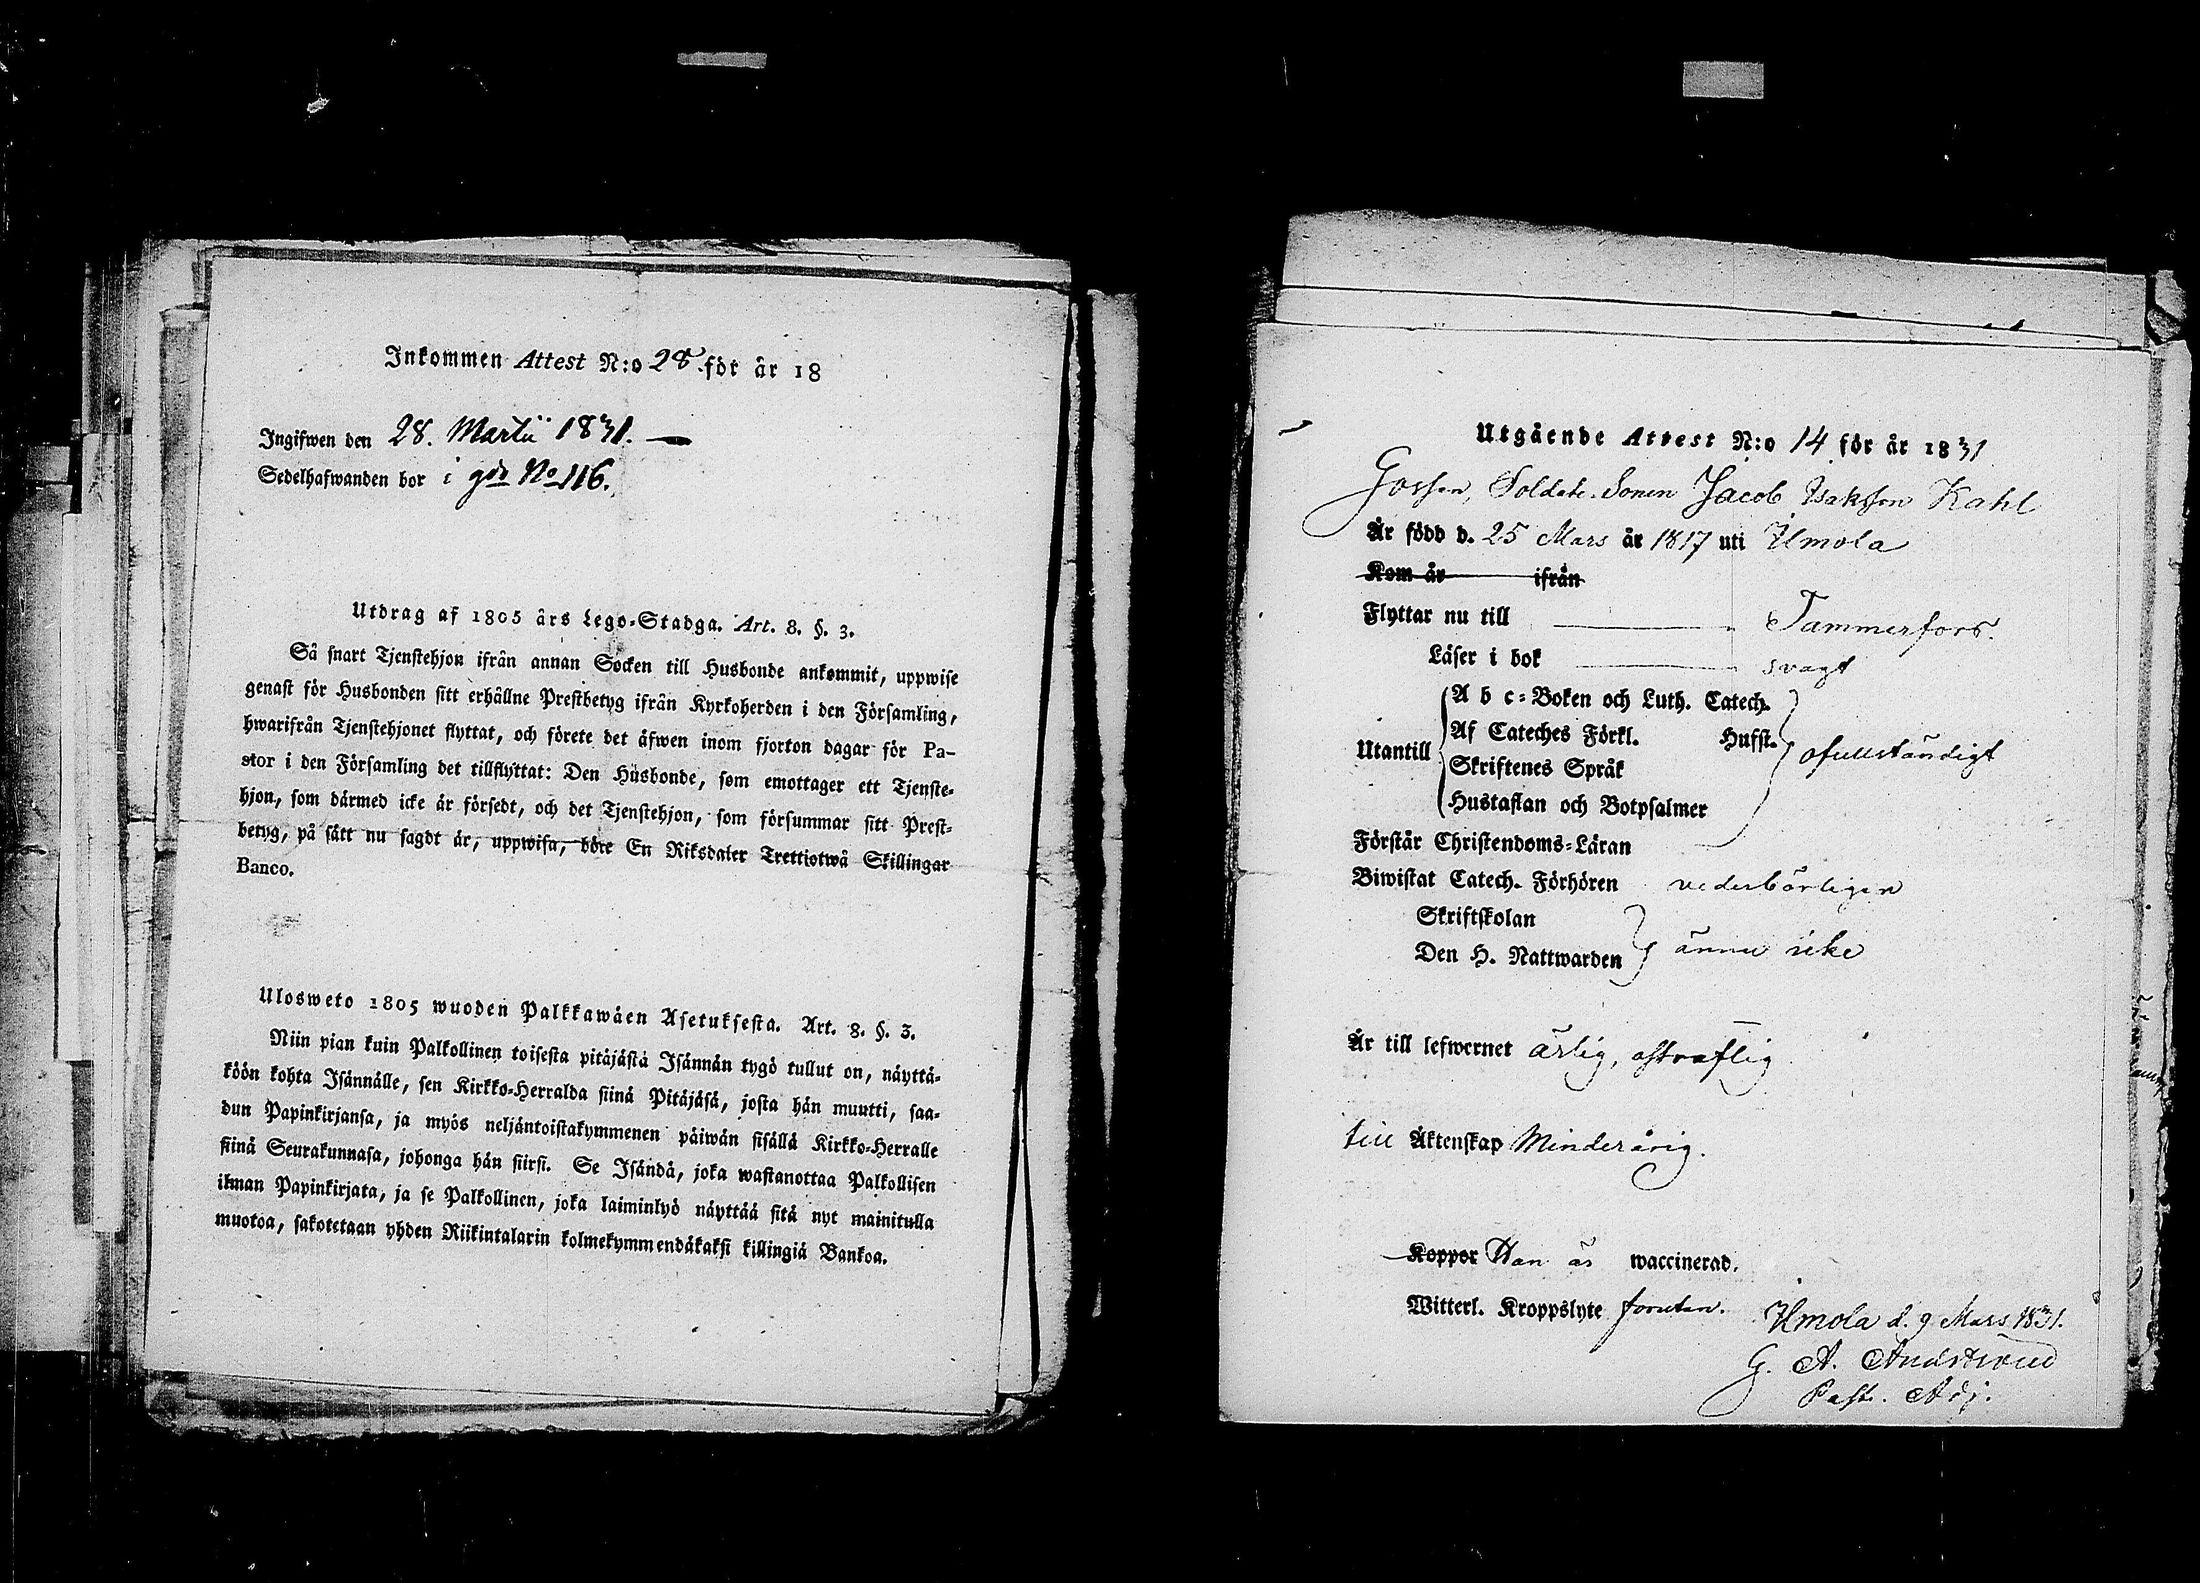 Inkommen Attest N:o 28. för år 18
Ingifwen den 28. Martii 1831. —
Sedelhafwanden bor i gdn No 116.
Utdrag af 1805 års Lego-Stadga. Art. 8. §. 3.
Så snart Tjenstehjon ifrån annan Socken till Husbonde ankommit, uppwise
genast för Husbonden sitt erhållne Prestbetyg ifrån Kyrkoherden i den Församling,
hwarifrån Tjenstehjonet flyttat, och förete det äfwen inom fjorton dagar för Pa-
stor i den Församling det tillflyttat: Den Husbonde, som emottager ett Tjenste-
hjon, som därmed icke är försedt, och det Tjenstehjon, som försummar sitt Prest-
betyg, på sätt nu sagdt är, uppwisa, böte En Riksdaler Trettiotwå Skillingar
Banco.
Ulosweto 1805 wuoden Palkkawäen Asetuksesta. Art. 8. §. 3.
Niin pian kuin Palkollinen toisesta pitäjästä Isännän tygö tullut on, näyttä-
köön kohta Isännälle, sen Kirkko-Herralda siinä Pitäjäsä, josta hän muutti, saa-
dun Papinkirjansa, ja myös neljäntoistakymmenen päiwän sisällä Kirkko-Herralle
siinä Seurakunnasa, johonga hän siirsi. Se Isändä, joka wastanottaa Palkollisen
ilman Papinkirjata, ja se Palkollinen, joka laiminlyö näyttää sitä nyt mainitulla
muotoa, sakotetaan yhden Riikintalarin kolmekymmendäkaksi killingiä Bankoa.
Utgående Attest N:o 14 för år 1831
Gossen, Soldate Sonen Jacob Isaksson Kahl
Är född d. 25 Mars år 1817 uti Ilmola
Kom år ifrån
Flyttar nu till Tammerfors.
Läser i bok svagt
A b c-Boken och Luth. Catech.
Utantill Af Cateches Förkl. Husst. ofullständigt
Skriftenes Språk
Hustaflan och Botpsalmer
Förstår Christendoms-Läran
Biwistat Catech. Förhören vederbörligen
Skriftskolan
Den H. Nattwarden ännu icke
Är till lefwernet ärlig, ostrafflig
till Äktenskap Minderårig.
Koppor Han är waccinerad.
Witterl. Kroppslyte förutan. Ilmola d. 9 Mars 1831.
G. A.
Past. Adj.